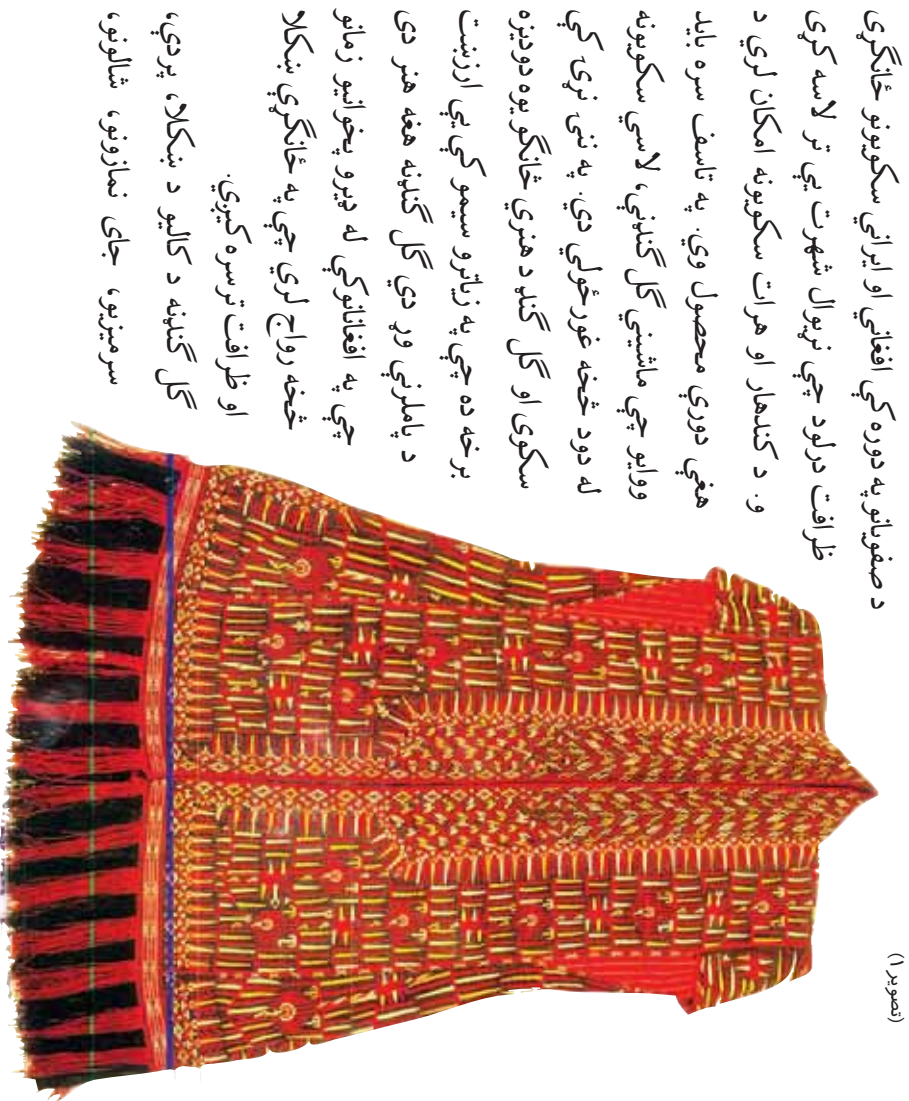 د صفویانو په دوره کې افغاني او ایراني سکویونو ځانګړی
ظرافت درلود چې نړیوال شهرت یې تر لاسه کړی
و. د کندهار او هرات سکویونه امکان لري د
هغې دورې محصول وي. په تاسف سره باید
ووایو چې ماشیني ګل ګنډنې، لاسي سکویونه
له دود څخه غورځولي دي. په ننۍ نړۍ کې
سکوی او ګل ګنډ د هنري څانګو یوه دودیزه
برخه ده چې په زیاترو سیمو کې یې ارزښت
د پاملرنې وړ دي ګل ګنډنه هغه هنر دی
چې په افغانانوکې له ډېرو پخوانیو زمانو
څخه رواج لري چې په ځانګړې ښکلا
او ظرافت تر سره کېږي.
ګل ګنډنه د کالیو د ښکلا، پردې،
سرمیزیو، جای نمازونو، شالونو،
(تصویر ۱)